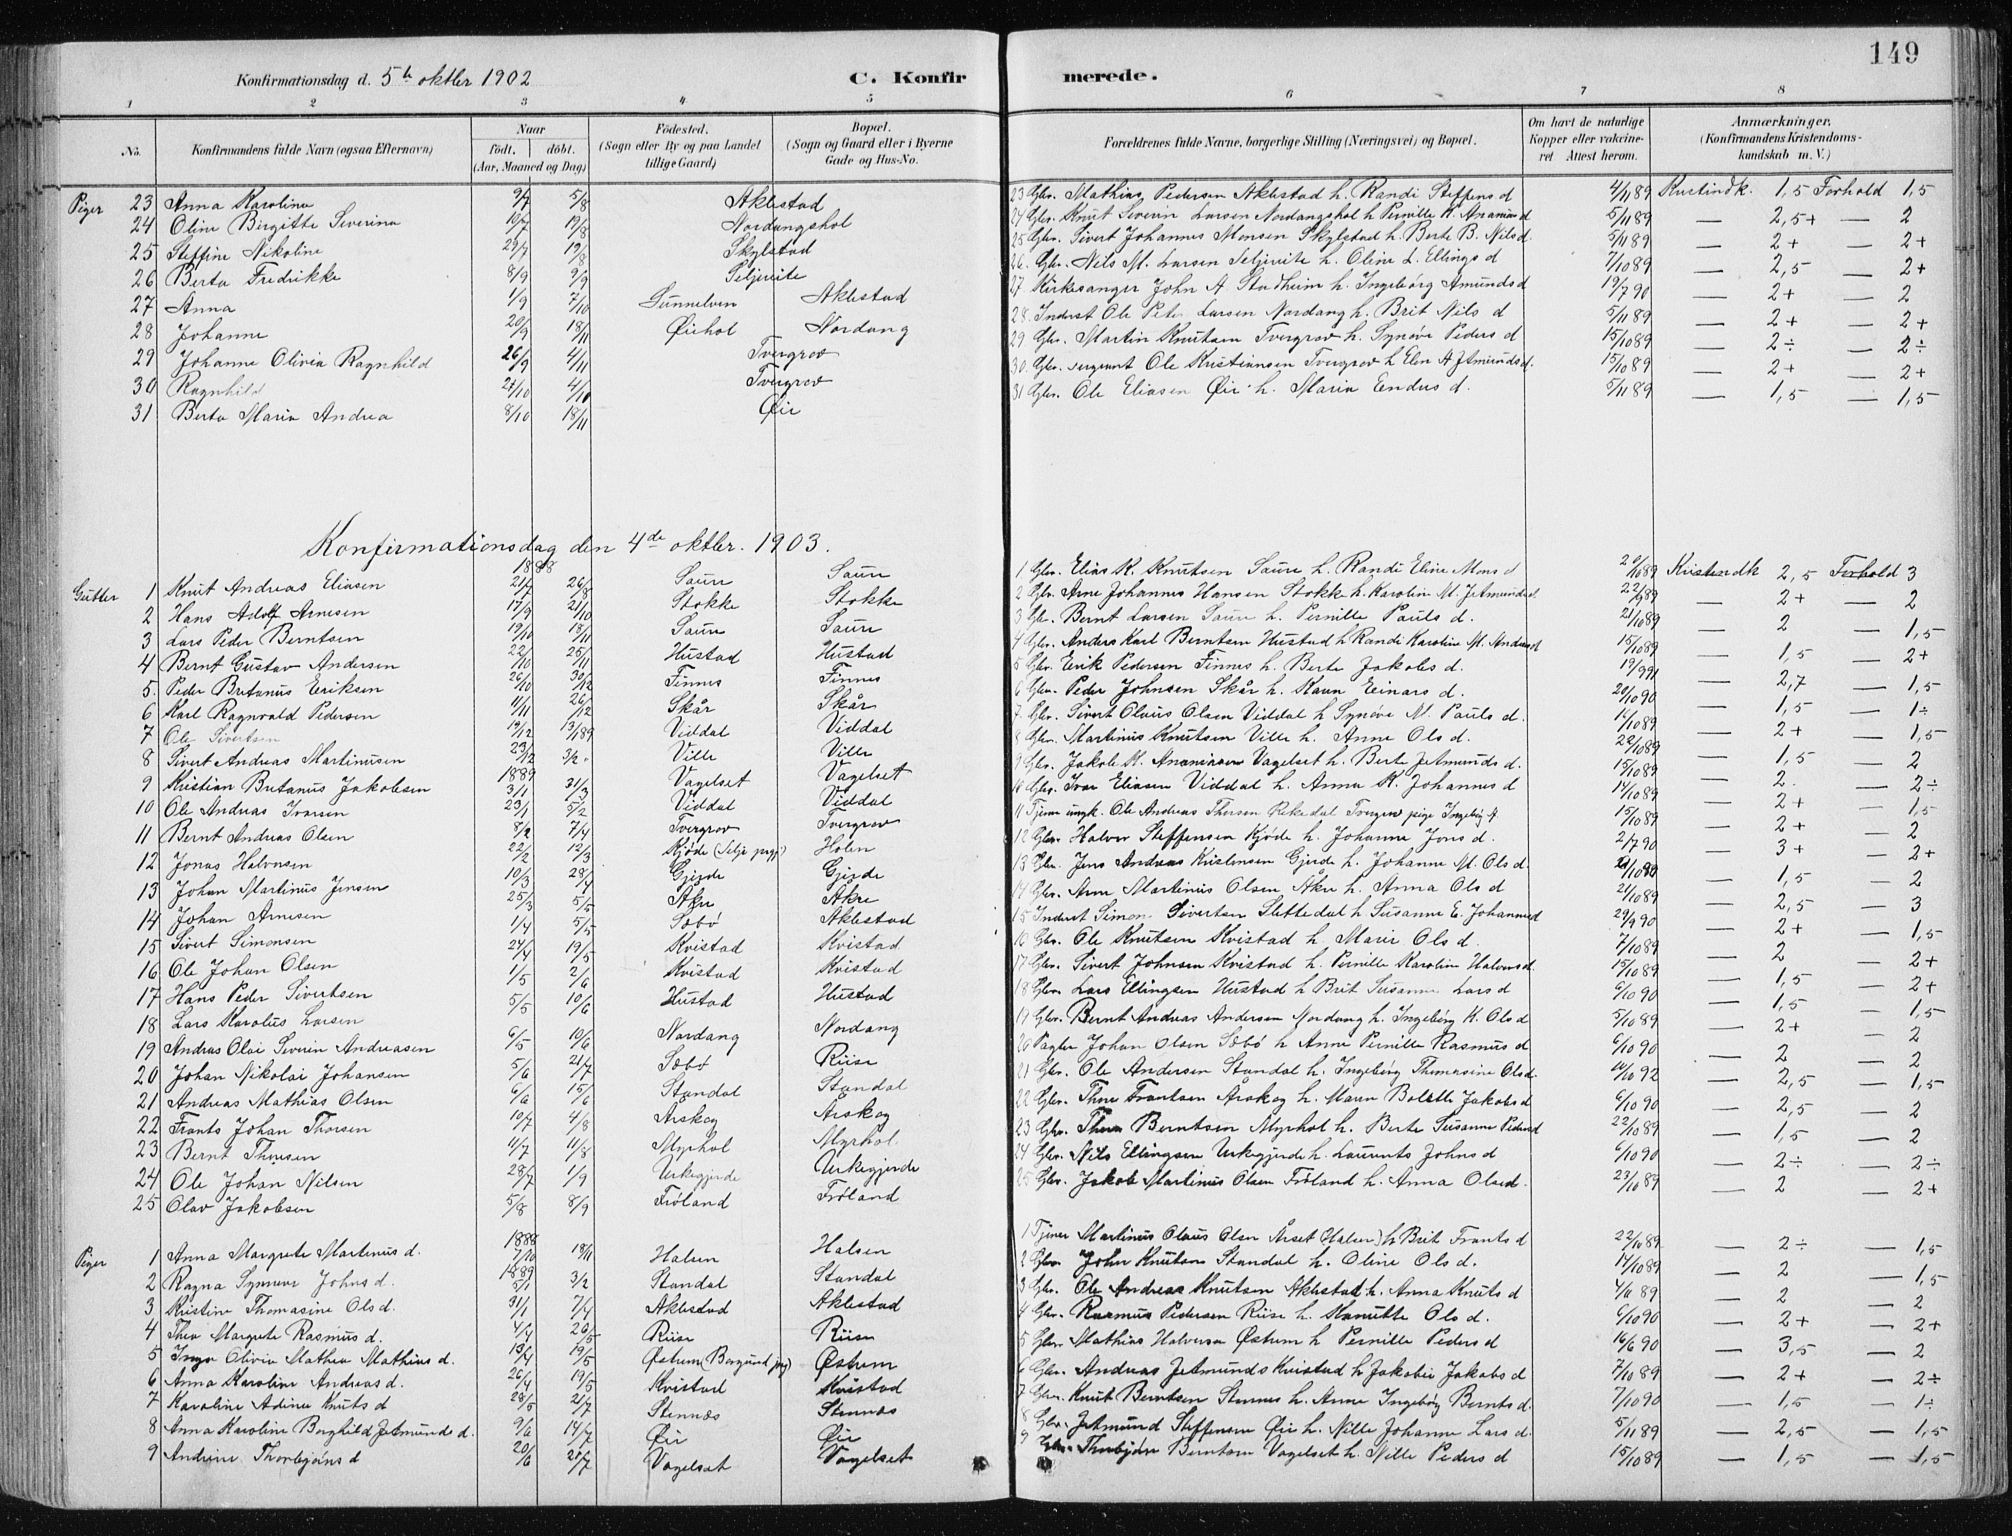 149
Konfirmationsdag d. 5te oktber 1902 C. Konfirmerede.
1 2 3 4 5 6 7 8
No. Konfirmandens fulde Navn (ogsaa Efternavn) Naar født. døbt. (Aar, Maaned og Dag) Fødested. (Sogn eller By og paa Landet tillige Gaard) Bopæl. (Sogn og Gaard eller i Byerne Gade og Hus-No. Forældrenes fulde Navne, borgerlige Stilling (Næringsvei) og Bopæl. Om havt de naturlige Kopper eller vakcineret Attest herom. Anmærkninger. (Konfirmandens Kristendomskundskab m. V.)
Piger 23 Anna Karoline 9/7 5/8 Aklestad 23 Gbr. Mathias Pedersen Aklestad h. Randi Steffens d 4/11 89 Kristindk. 1,5 Forhold 1,5
24 Oline Birgitte Severine 10/7 19/8 Nordangshol 24 Gbr. Knut Severin Larsen Nordangshol h Pernille K. Ananias d 5/11 89 — 2,5+ — 2
25 Steffine Nikoline 29/7 19/8 Skylstad 25 Gbr. Sivert Johannes Monsen Skylstad h. Berte B. Nils d. 5/11 89 — 2+ — 2+
26 Berta Fredrikke 8/9 9/9 Seljeveite 26. Gbr. Nils M. Larsen Seljeveite h. Oline L. Ellings d 7/10 89 — 2,5 — 2+
27 Anna 1/9 7/10 Sunnelven Aklestad 27 Kirkesanger John A Stadheim h. Ingebørg Amunds d 19/7 90 — 2+ — 2
28 Johanne 20/9 18/11 Øirhol Nordang 28. Inderst Ole Peter Larsen Nordang h. Brit Nils d 5/11 89 — 2+ — 2+
29 Johanne Olivia Ragnhild 26/9 4/11 Tvergrov 29 Gbr. Martin Knutsen Tvergrov h. Synøve Peders d 15/10 89 — 2÷ — 2÷
30 Ragnhild 21/10 4/10 Tvergrov 30. Gbr. sergeant Ole Kristiansen Tvergrov h Elen A Jetmunds d. 15/10 89 — 2+ — 2+
31 Berta Maria Andrea 8/10 18/11 Øir 31 Gbr. Ole Eliasen Øir h. Maria Endres d. 5/11 89 — 1,5 — 1,5
Konfirmationsdag den 4de oktber. 1903.
1888
Gutter 1 Knut Andreas Eliasen 21/7 26/8 Saure Saure 1 Gbr. Elias K. Knutsen Saure h. Randi Eline Mons d 20/10 89 Kristendk 2,5 Forhold 3
2 Hans Adolf Arnesen 17/9 21/10 Stokke Stokke 2 Gbr. Arne Johannes Hansen Stokk h. Karoline M. Jetmunds d 22/9 89 — 2+ — 2
3 Lars Peder Berntsen 19/10 18/11 Saure Saure 3 Gbr. Bernt Larsen Saure h. Pernille Pauls d. 21/10 89 — 2 — 1,5
4 Bernt Gustav Andersen 22/10 25/11 Hustad Hustad 4 Gbr. Anders Karl Berntsen Hustad h Randi Karoline M. Andreas d 15/10 89 — 1,5 — 2+
5. Peder Britanus Eriksen 26/10 30/12 Finnes Finnes 5 Gbr. Erik Pedersen Finnes h. Berte Jakobs d. 19/9 91 — 2,7 — 1,5
6 Karl Ragnvald Pedersen 11/11 26/12 Skår Skår 6 Gbr. Peder Johnsen Skår h. Karen Einars d. 20/10 90 — 1,5 — 1÷
7 Ole Sivertsen 19/12 13/1 89 Viddal Viddal 7. Gbr. Sivert Olaus Olsen Viddal h Synøve M. Pauls d. 14/10 89 — 2+ — 1,5
8 Sivert Andreas Martinusen 23/12 3/2 Ville Ville 8 Gbr. Martinus Knutsen Ville h. Anne Ols d. 22/10 89 — 1,5 — 2
1889
9 Kristian Britanus Jakobsen 3/1 31/3 Vagelset Vagelset 9 Gbr. Jakob K. Ananiasen Vagelset h. Berte Jetmunds d. 15/10 89 — 2. — 2÷
10 Ole Andreas Ivarsen 23/1 5/2 Viddal Viddal 10 Gbr. Ivar Eliasen Viddal h. Anna K. Johannes d 14/10 89 — 2+ — 1,5
11 Bernt Andreas Olsen 8/2 7/4 Tvergrov Tvergrov 11 Tjener ungk. Ole Andreas Thorsen Rekedal Tvergrov pige Ingebj. A. 15/10 89 — 2+ — 2
12 Jonas Halvorsen 22/2 12/3 Kjøde (Selje prgj.) Holen 12 Gbr. Halvor Steffensen Kjøde h. Johanne Jons d. 2/7 90 — 3+ — 2+
13 Johan Martinus Jensen 10/3 28/4 Gjerde Gjerde 13 Gbr. Jens Andreas Kristensen Gjerde h. Johanne M. Ols d. 21/10 89 — 1,5 — 2
14 Johan Arnesen 25/3 5/5 Åkre Akre 14 Gbr. Arne Martinus Olsen Åkre h. Anna Ols d 21/10 89 — 2,5 — 3
15 Sivert Simonsen 1/4 5/5 Sæbø Aklestad 15 Inderst Simon Sivertsen Slettedal h Susanne E. Johannes d 29/9 90 — 2+ — 1,5
16 Ole Johan Olsen 24/4 19/5 Kvistad Kvistad 16 Gbr. Ole Knutsen Kvistad h. Marie Ols d. 7/10 89 — 2 — 2+
17 Hans Peder Sivertsen 1/5 2/6 Kvistad Kvistad 17 Gbr. Sivert Johnsen Kvistad h. Pernille Karoline Halvors d. 15/10 89 — 1,5 — 2+
18 Lars Karolus Larsen 5/5 10/6 Hustad Hustad 18 Gbr. Lars Ellingsen Hustad h Brit Susanne Lars d 6/10 90 — 1,5 — 1,5
19 Andreas Olai Severin Andreasen 6/5 10/6 Nordang Nordang 19 Gbr. Bernt Andreas Andersen Nordang h. Ingebørg K. Ols d 5/10 89 — 2+ — 2
20 Johan Nikolai Johansen 5/6 21/7 Sæbø Riise 20 Pagter Johan Olsen Sæbø h Anne Pernille Rasmus d 6/10 90 — 2 — 2
21 Andreas Mathias Olsen 6/6 15/6 Standal Standal 21 Gbr. Ole Andersen Standal h. Ingebørg Thomasine Ols d. 10/10 92 — 2,5 — 1,5
22 Frants Johan Thorsen 10/7 4/8 Årskog Årskog 22 Gbr. Thore Frantsen Årskog h. Maren Bolette Jakobs d 6/10 90 — 2,5 — 2
23 Bernt Thoresen 11/7 11/8 Myrhol Myrhol 23 Gbr. Thore Berntsen Myrhol h. Berte Susanne Peders d 22/10 89 — 1,5 — 2
24 Ole Johan Nilsen 28/7 1/9 Urkegjerde Urkegjerde 24 Gbr. Nils Ellingsen Urkegjerde h. Laurents Johns d 6/10 90 — 2÷ — 2÷
25 Olav Jakobsen 5/8 8/9 Frøland Frøland 25 Gbr. Jakob Martinus Olsen Frøland h. Anna Ols d. 23/10 89 — 2 — 2+
1888
Piger 1 Anna Margrete Martinus d. 7/10 18/11 Halsen Halsen 1 Tjener Martinus Olaus Olsen Årset (Halsen) h Brit Frants d 22/10 89 — 2÷ — 1,5
1889
2 Ragna Synnøve Johns d. 5/1 3/2 Standal Standal 2 Gbr. John Knutsen Standal h. Oline Ols d. 14/10 89 — 2 — 1,5
3 Kristine Thomasine Ols d. 31/1 7/4 Aklestad Aklestad 3 Gbr. Ole Andreas Knutsen Aklestad h. Anna Knuts d 4/11 89 — 2 — 2
4 Thea Margrete Rasmus d. 4/4 26/5 Riise Riise 4 Gbr. Rasmus Pedersen Riise h. Kanutte Ols d. 6/10 90 — 2+ — 2+
5 Inga Olivia Mathea Mathias d. 13/4 19/5 Østrem (Borgund prgj) Østrem 5 Gbr. Mathias Halvorsen Østrem h Pernille Peders d 16/6 90 — 3,5 — 2
6 Anna Karoline Andreas d. 26/4 19/5 Kvistad Kvistad 6 Gbr. Andreas Jetmunds Kvistad h Jakobie Jakobs d 7/10 89 — 2+ — 2÷
7 Karoline Adine Knuts d 28/5 21/7 Stennæs Stennæs 7 Gbr. Knut Berntsen Stennes h. Anne Ingebørg Bernts d. 7/10 90 — 1,5 — 1÷
8 Anna Karoline Borghild Jetmunds d. 9/6 14/7 Øir Øir 8 Gbr. Jetmund Steffensen Øir h. Nille Johanne Lars d. 5/11 89 — 2,5 — 1,5
9 Andrine Thorbjøns d 20/6 21/7 Vagelset Vagelset 9 Gbr. Thorbjørn Berntsen Vagelset h. Nille Peders d 15/10 89 — 1,5 — 1,5